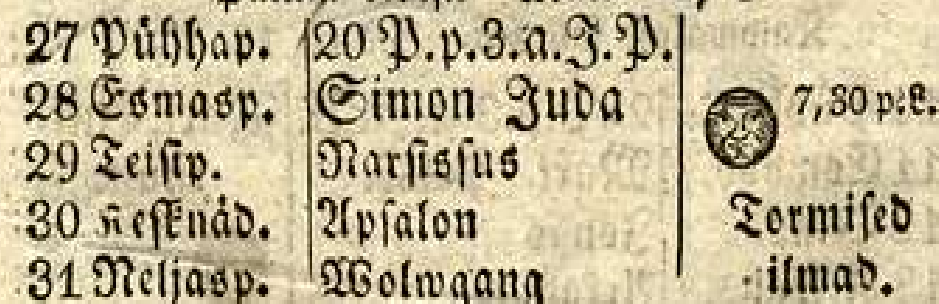 27 Pühhap. 20 P.p.3.a.J.P.
28 Esmasp. Simon Juda 7,30 p:L.
29 Teisip. Narsissus
30 Kesknäd. Apsalon Tormised
31 Neljasp. Wolwgang ilmad.